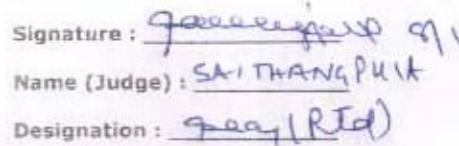 Signature :
Name (Judge) : SAITHANGPUIA
Designation : (RTd)